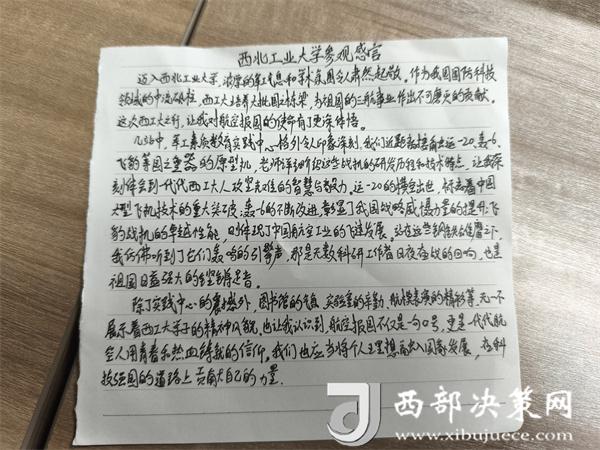 西北工业大学参观感言
迈入西北工业大学,浓厚的军工气息和学术氛围令人肃然起敬。作为我国国防科技
领域的中流砥柱,西工大培养大批国之栋梁,为祖国的三航事业作出不可磨灭的贡献。
这次西工大之行,让我对航空报国的使命有了更深体悟。
几站中,军工素质教育实践中心格外令人印象深刻,我们近距离接触运-20、轰-6、
飞豹等国之重器的原型机,老师详细介绍这些战机的研发历程和技术特点,让我深
刻体会到一代代西工大人攻坚克难的智慧与毅力,运-20的横空出世,标志着中国
大型飞机技术的重大突破;轰-6的不断改进,彰显了我国战略威慑力量的提升;飞
豹战机的卓越性能,则体现了中国航空工业的飞速发展。站在这些钢铁之下,
我仿佛听到了它们轰鸣的引擎声,那是无数科研工作者日夜奋战的回响,也是
祖国日益强大的铿锵足音。
除了实践中心的震撼外,图书馆的气息、实验室的辛勤、航模表演的精彩等,无一不
展示着西工大学子的精神风貌,也让我认识到,航空报国不仅是一句口号,更是一代代航
空人用青春和热血铸就的信仰,我们也应当将个人理想融入国家发展,在科
技强国的道路上贡献自己的力量.
西部决策网
www.xibujuece.com